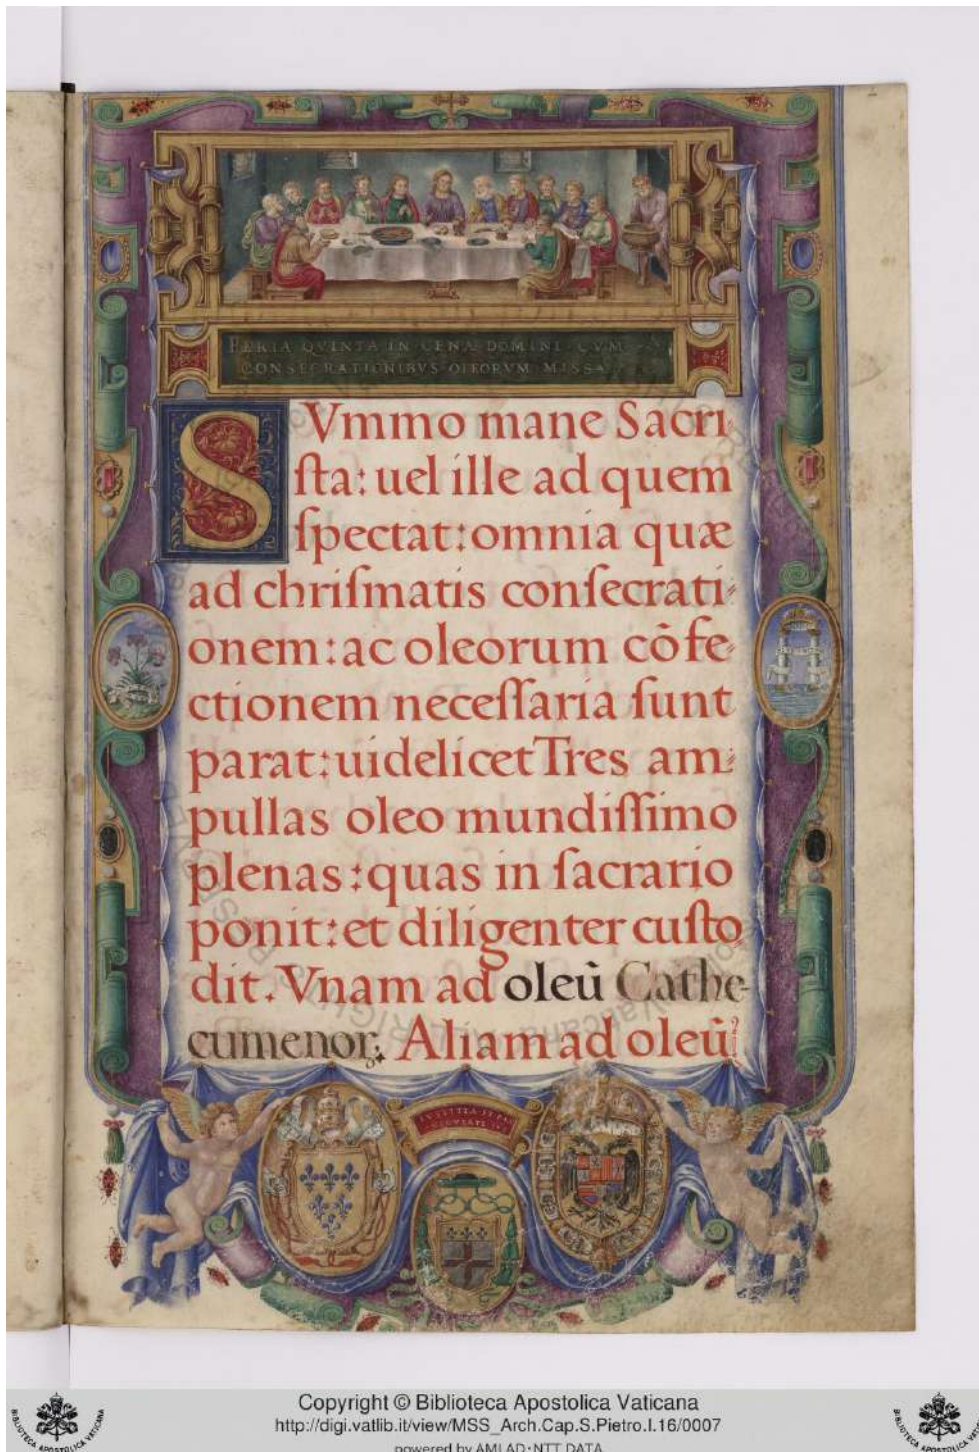 FERIA QVINTA IN CENA DOMINI CVM
CONSECRATIONIBVS OLEORVM MISSA
SVmmo mane Sacri
ſta: uel ille ad quem
ſpectat: omnia quæ
ad chriſmatis conſecrati⸗
onem: ac oleorum cõfe⸗
ctionem neceſſaria ſunt
parat: uidelicet Tres am⸗
pullas oleo mundiſſimo
plenas: quas in ſacrario
ponit: et diligenter cuſto
dit. Vnam ad oleũ Cathe-
cumenoꝝ. Aliam ad oleũ
Copyright © Biblioteca Apostolica Vaticana
http://digi.vatlib.it/view/MSS_Arch.Cap.S.Pietro.I.16/0007
powered by AMLAD·NTT DATA
BIBLIOTECA APOSTOLICA VATICANA
BIBLIOTECA APOSTOLICA VATICANA